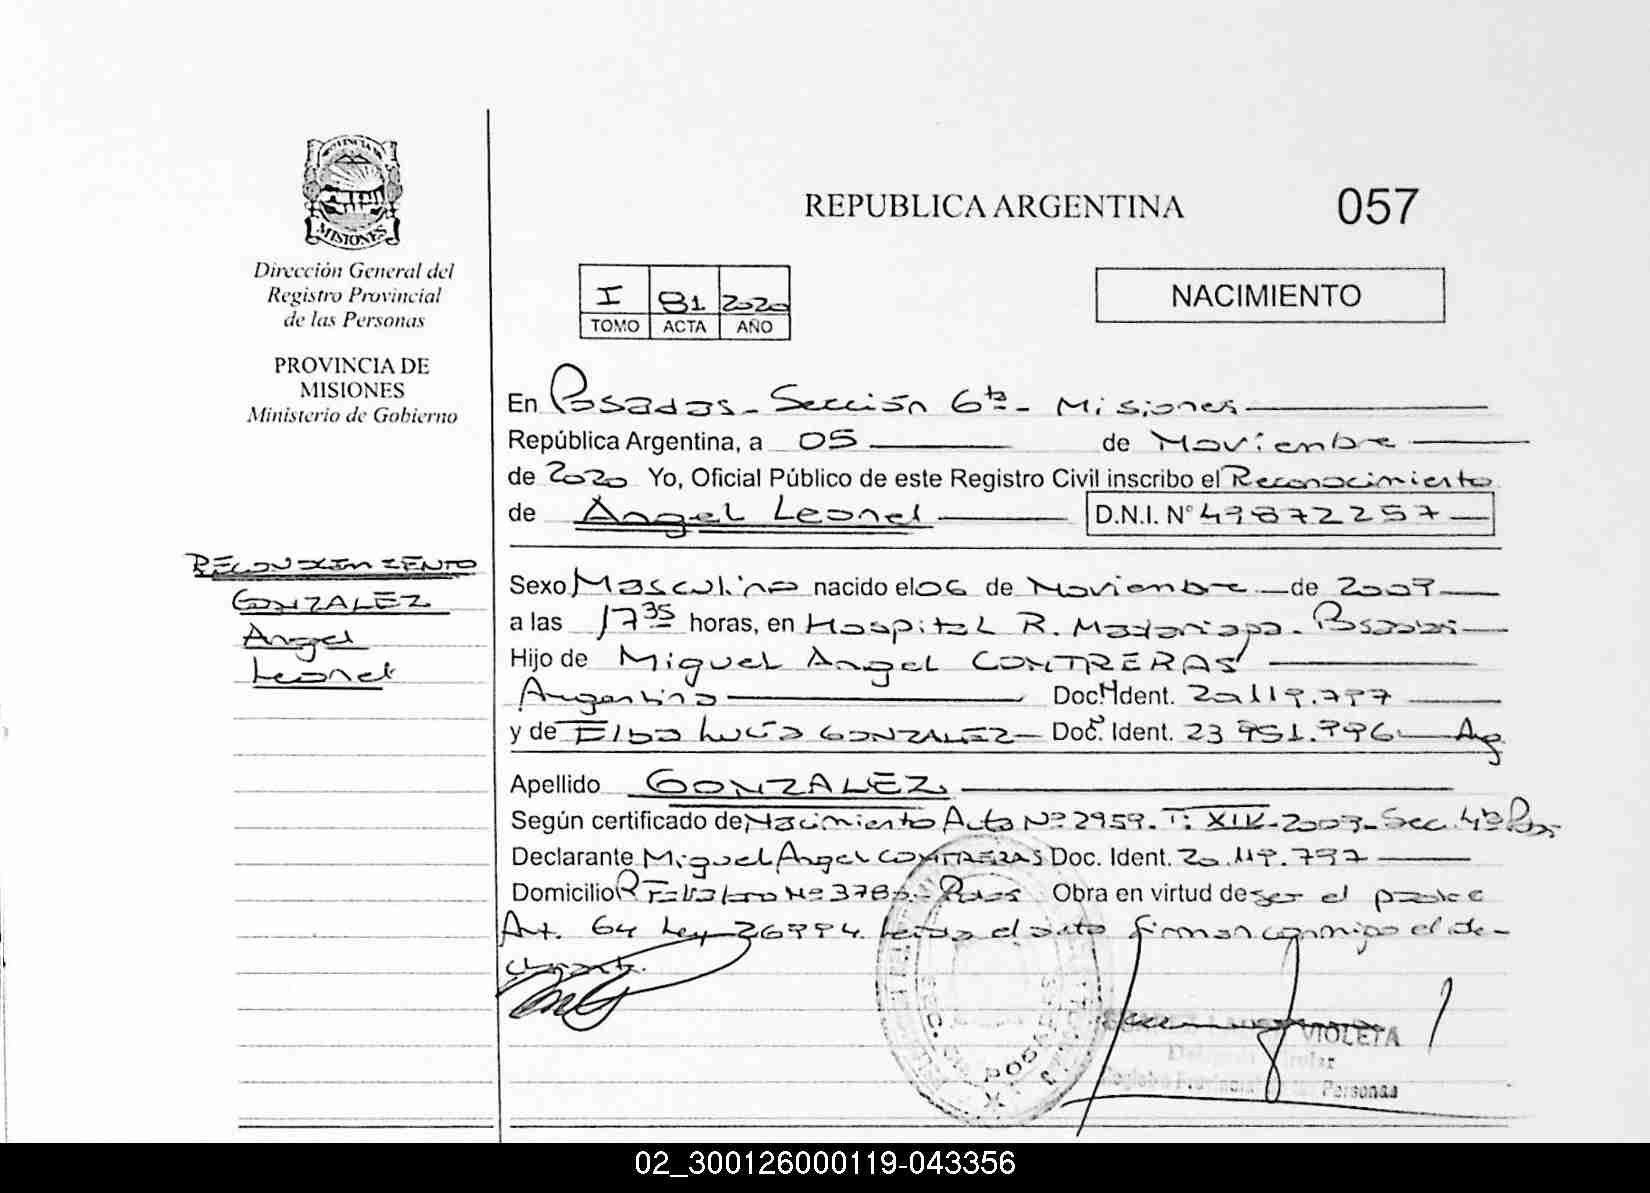 MISIONES
Dirección General del
Registro Provincial
de las Personas
PROVINCIA DE
MISIONES
Ministerio de Gobierno
REPUBLICA ARGENTINA
057
I 81 2020
TOMO ACTA AÑO
NACIMIENTO
En Posadas - Sección 6ta - Misiones
República Argentina, a 05 de Noviembre
de 2020 Yo, Oficial Público de este Registro Civil inscribo el Reconocimiento
de Angel Leonel D.N.I. N° 49872257
RECONOCIMIENTO
GONZALEZ
Angel
Leonel
Sexo Masculino nacido el 06 de Noviembre de 2009
a las 17 35 horas, en Hospital R. Madariaga - Posadas
Hijo de Miguel Angel CONTRERAS
Argentino Doc. Ident. 20.119.797
y de Elba Lucía GONZALEZ Doc. Ident. 23 951.996 Arg
Apellido GONZALEZ
Según certificado de Nacimiento Acta Nº 2959 - T: XIV - 2009 - Sec. 4º
Declarante Miguel Angel CONTRERAS Doc. Ident. 20.119.797
Domicilio Nº Obra en virtud de ser el padre
Art. 64 Ley 26994. Leída el acta firman conmigo el de-
clarante.
VIOLETA
Registro Provincial Personas
02_300126000119-043356